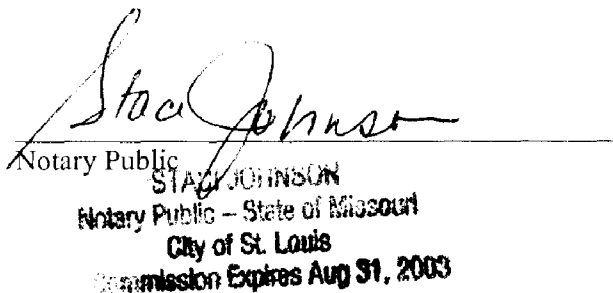 Staci Johnson
Notary Public
STACI JOHNSON
Notary Public – State of Missouri
City of St. Louis
Commission Expires Aug 31, 2003